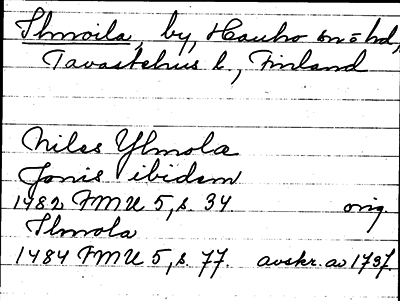 Ilmoila, by, Hauho sn o hd,
Tavastehus l., Finland
Niles Ylmola
Jonis ibidem
1482 FMU 5, s. 34 orig.
Ilmola
1484 FMU 5, s. 77. avskr. av 1737.